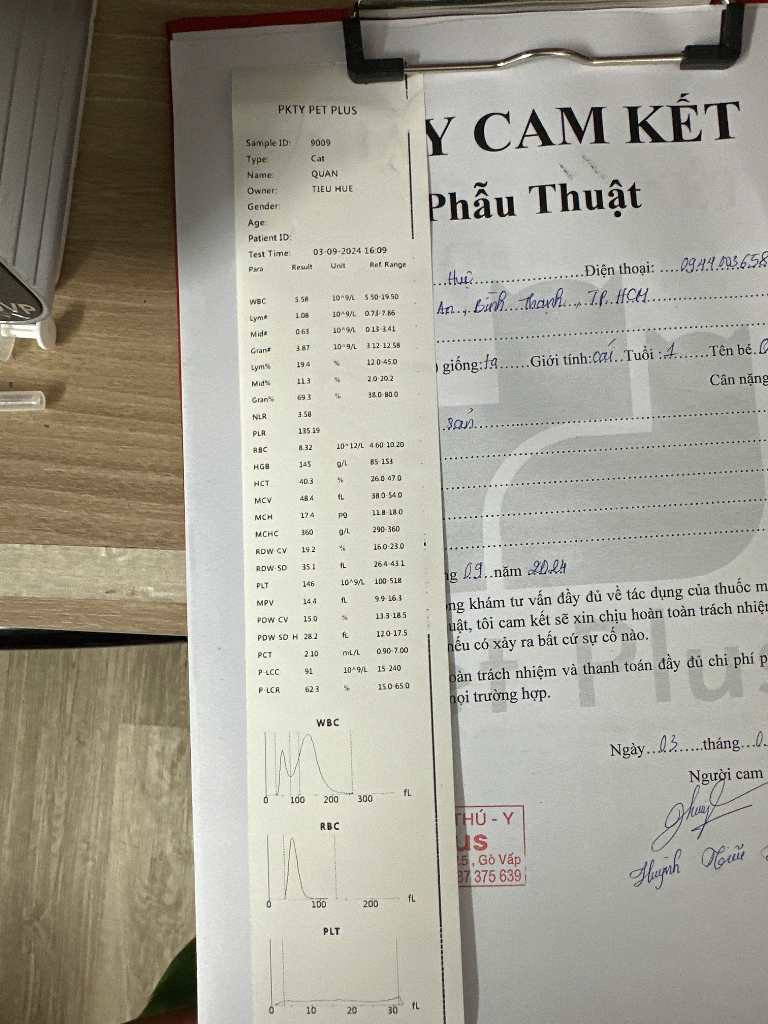 PKTY PET PLUS
Sample ID: 9009
Type: Cat
Name: QUAN
Owner: TIEU HUE
Gender:
Age:
Patient ID:
Test Time: 03-09-2024 16:09
Para Result Unit Ref Range
WBC 5.58 10^9/L 5.50-19.50
Lym# 1.08 10^9/L 0.73-7.86
Mid# 0.63 10^9/L 0.13-3.41
Gran# 3.87 10^9/L 3.12-12.58
Lym% 19.4 % 12.0-45.0
Mid% 11.3 % 2.0-20.2
Gran% 69.3 % 38.0-80.0
NLR 3.58
PLR 135.19
RBC 8.32 10^12/L 4.60-10.20
HGB 145 g/L 85-153
HCT 40.3 % 26.0-47.0
MCV 48.4 fL 38.0-54.0
MCH 17.4 pg 11.8-18.0
MCHC 360 g/L 290-360
RDW-CV 19.2 % 16.0-23.0
RDW-SD 35.1 fL 26.4-43.1
PLT 146 10^9/L 100-518
MPV 14.4 fL 9.9-16.3
PDW-CV 15.0 % 13.3-18.5
PDW-SD H 28.2 fL 12.0-17.5
PCT 2.10 mL/L 0.90-7.00
P-LCC 91 10^9/L 15-240
P-LCR 62.3 % 15.0-65.0
WBC
0 100 200 300 fL
RBC
0 100 200 fL
PLT
0 10 20 30 fL
Y CAM KẾT
Phẫu Thuật
Huê Điện thoại: 0944.003.658
An, Bình Thạnh, TP. HCM
giống: ta Giới tính: cái Tuổi: 1 Tên bé.
Cân nặng
sản
09 năm 2024
ng khám tư vấn đầy đủ về tác dụng của thuốc m
uật, tôi cam kết sẽ xin chịu hoàn toàn trách nhiệ
nếu có xảy ra bất cứ sự cố nào.
oàn trách nhiệm và thanh toán đầy đủ chi phí p
nọi trường hợp.
Ngày 03 tháng 0
Người cam
THÚ - Y
us
.5, Gò Vấp
37 375 639
Huỳnh